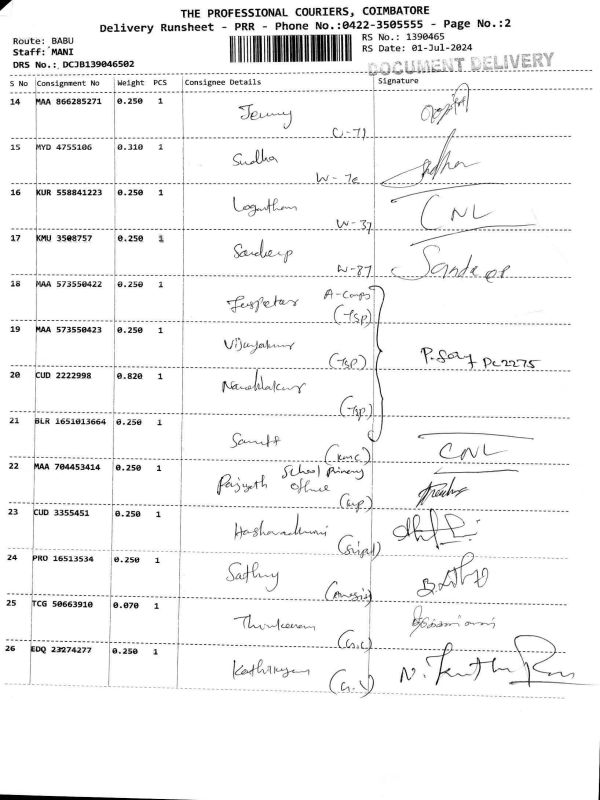 THE PROFESSIONAL COURIERS, COIMBATORE
Delivery Runsheet - PRR - Phone No.:0422-3505555 - Page No.:2
Route: BABU
RS No.: 1390465
Staff: MANI
RS Date: 01-Jul-2024
DRS No.: DCJB139046502
DOCUMENT DELIVERY
S No Consignment No Weight PCS Consignee Details Signature
14 MAA 866285271 0.250 1
Jenny
U-71
15 MYD 4755106 0.310 1
Sudha Sudha
W-7e
16 KUR 558841223 0.250 1
Logantham CNL
W-37
17 KMU 3508757 0.250 1
Sandeep Sandeep
W-87
18 MAA 573550422 0.250 1
A-Corps
(TSP)
19 MAA 573550423 0.250 1
Vijayakumar PC2275
(TSP)
20 CUD 2222998 0.820 1
(TSP)
21 BLR 1651013664 0.250 1
CNL
(kmc)
22 MAA 704453414 0.250 1
School Primary
Office
23 CUD 3355451 0.250 1
24 PRO 16513534 0.250 1
Sathy
25 TCG 50663910 0.070 1
(G.C)
26 EDQ 23274277 0.250 1
Kathikeyan
(G.V)